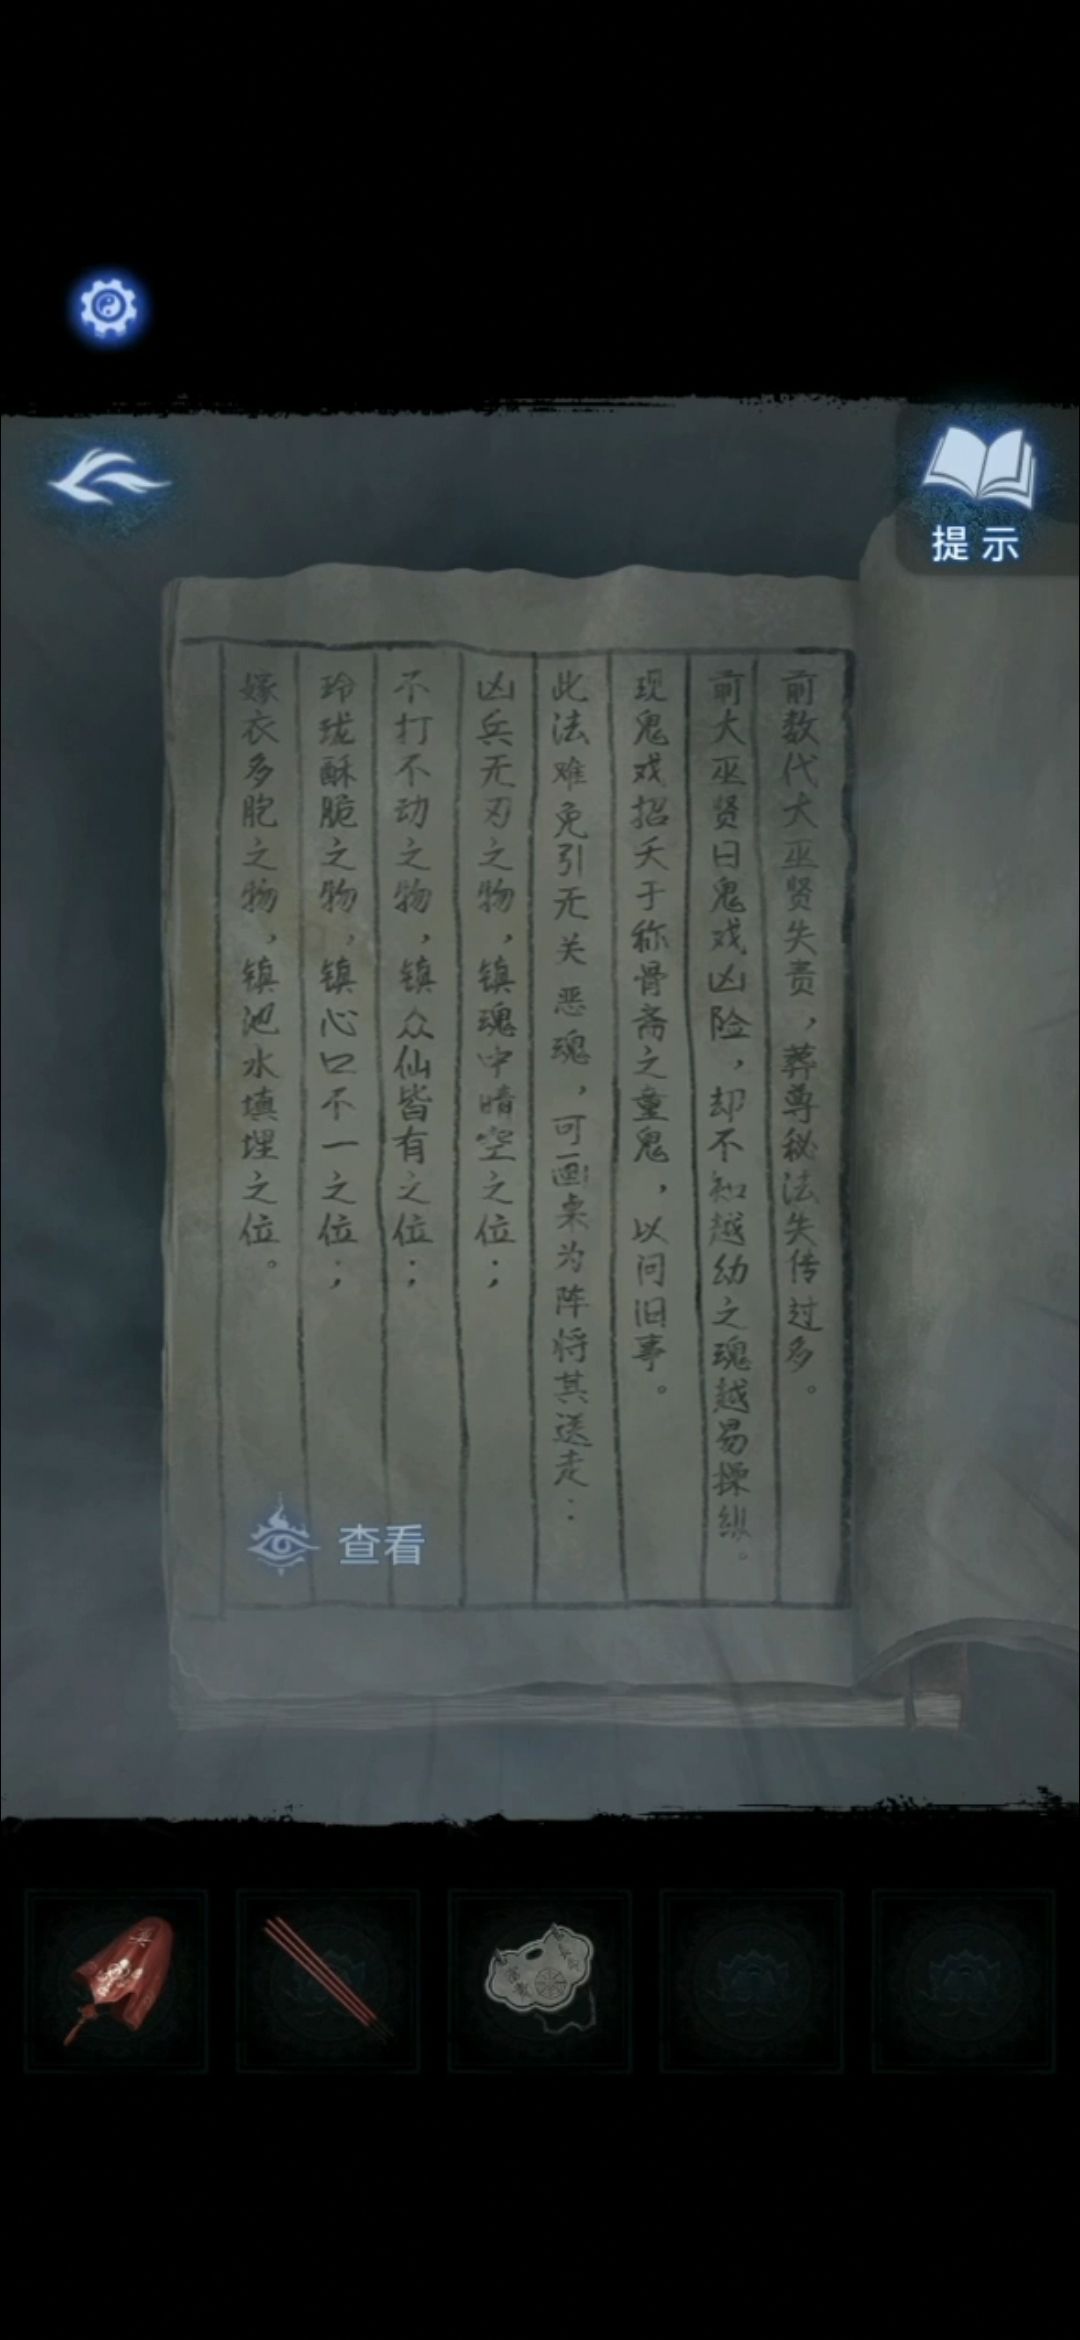 提示
前数代大巫贤失责，葬尊秘法失传过多。
前大巫贤曰鬼戏凶险，却不知越幼之魂越易操纵。
现鬼戏招夭于称骨斋之童鬼，以问旧事。
此法难免引无关恶魂，可画桌为阵将其送走：
凶兵无刃之物，镇魂中晴空之位；
不打不动之物，镇众仙皆有之位；
玲珑酥脆之物，镇心口不一之位；
嫁衣多胞之物，镇池水填埋之位。
查看